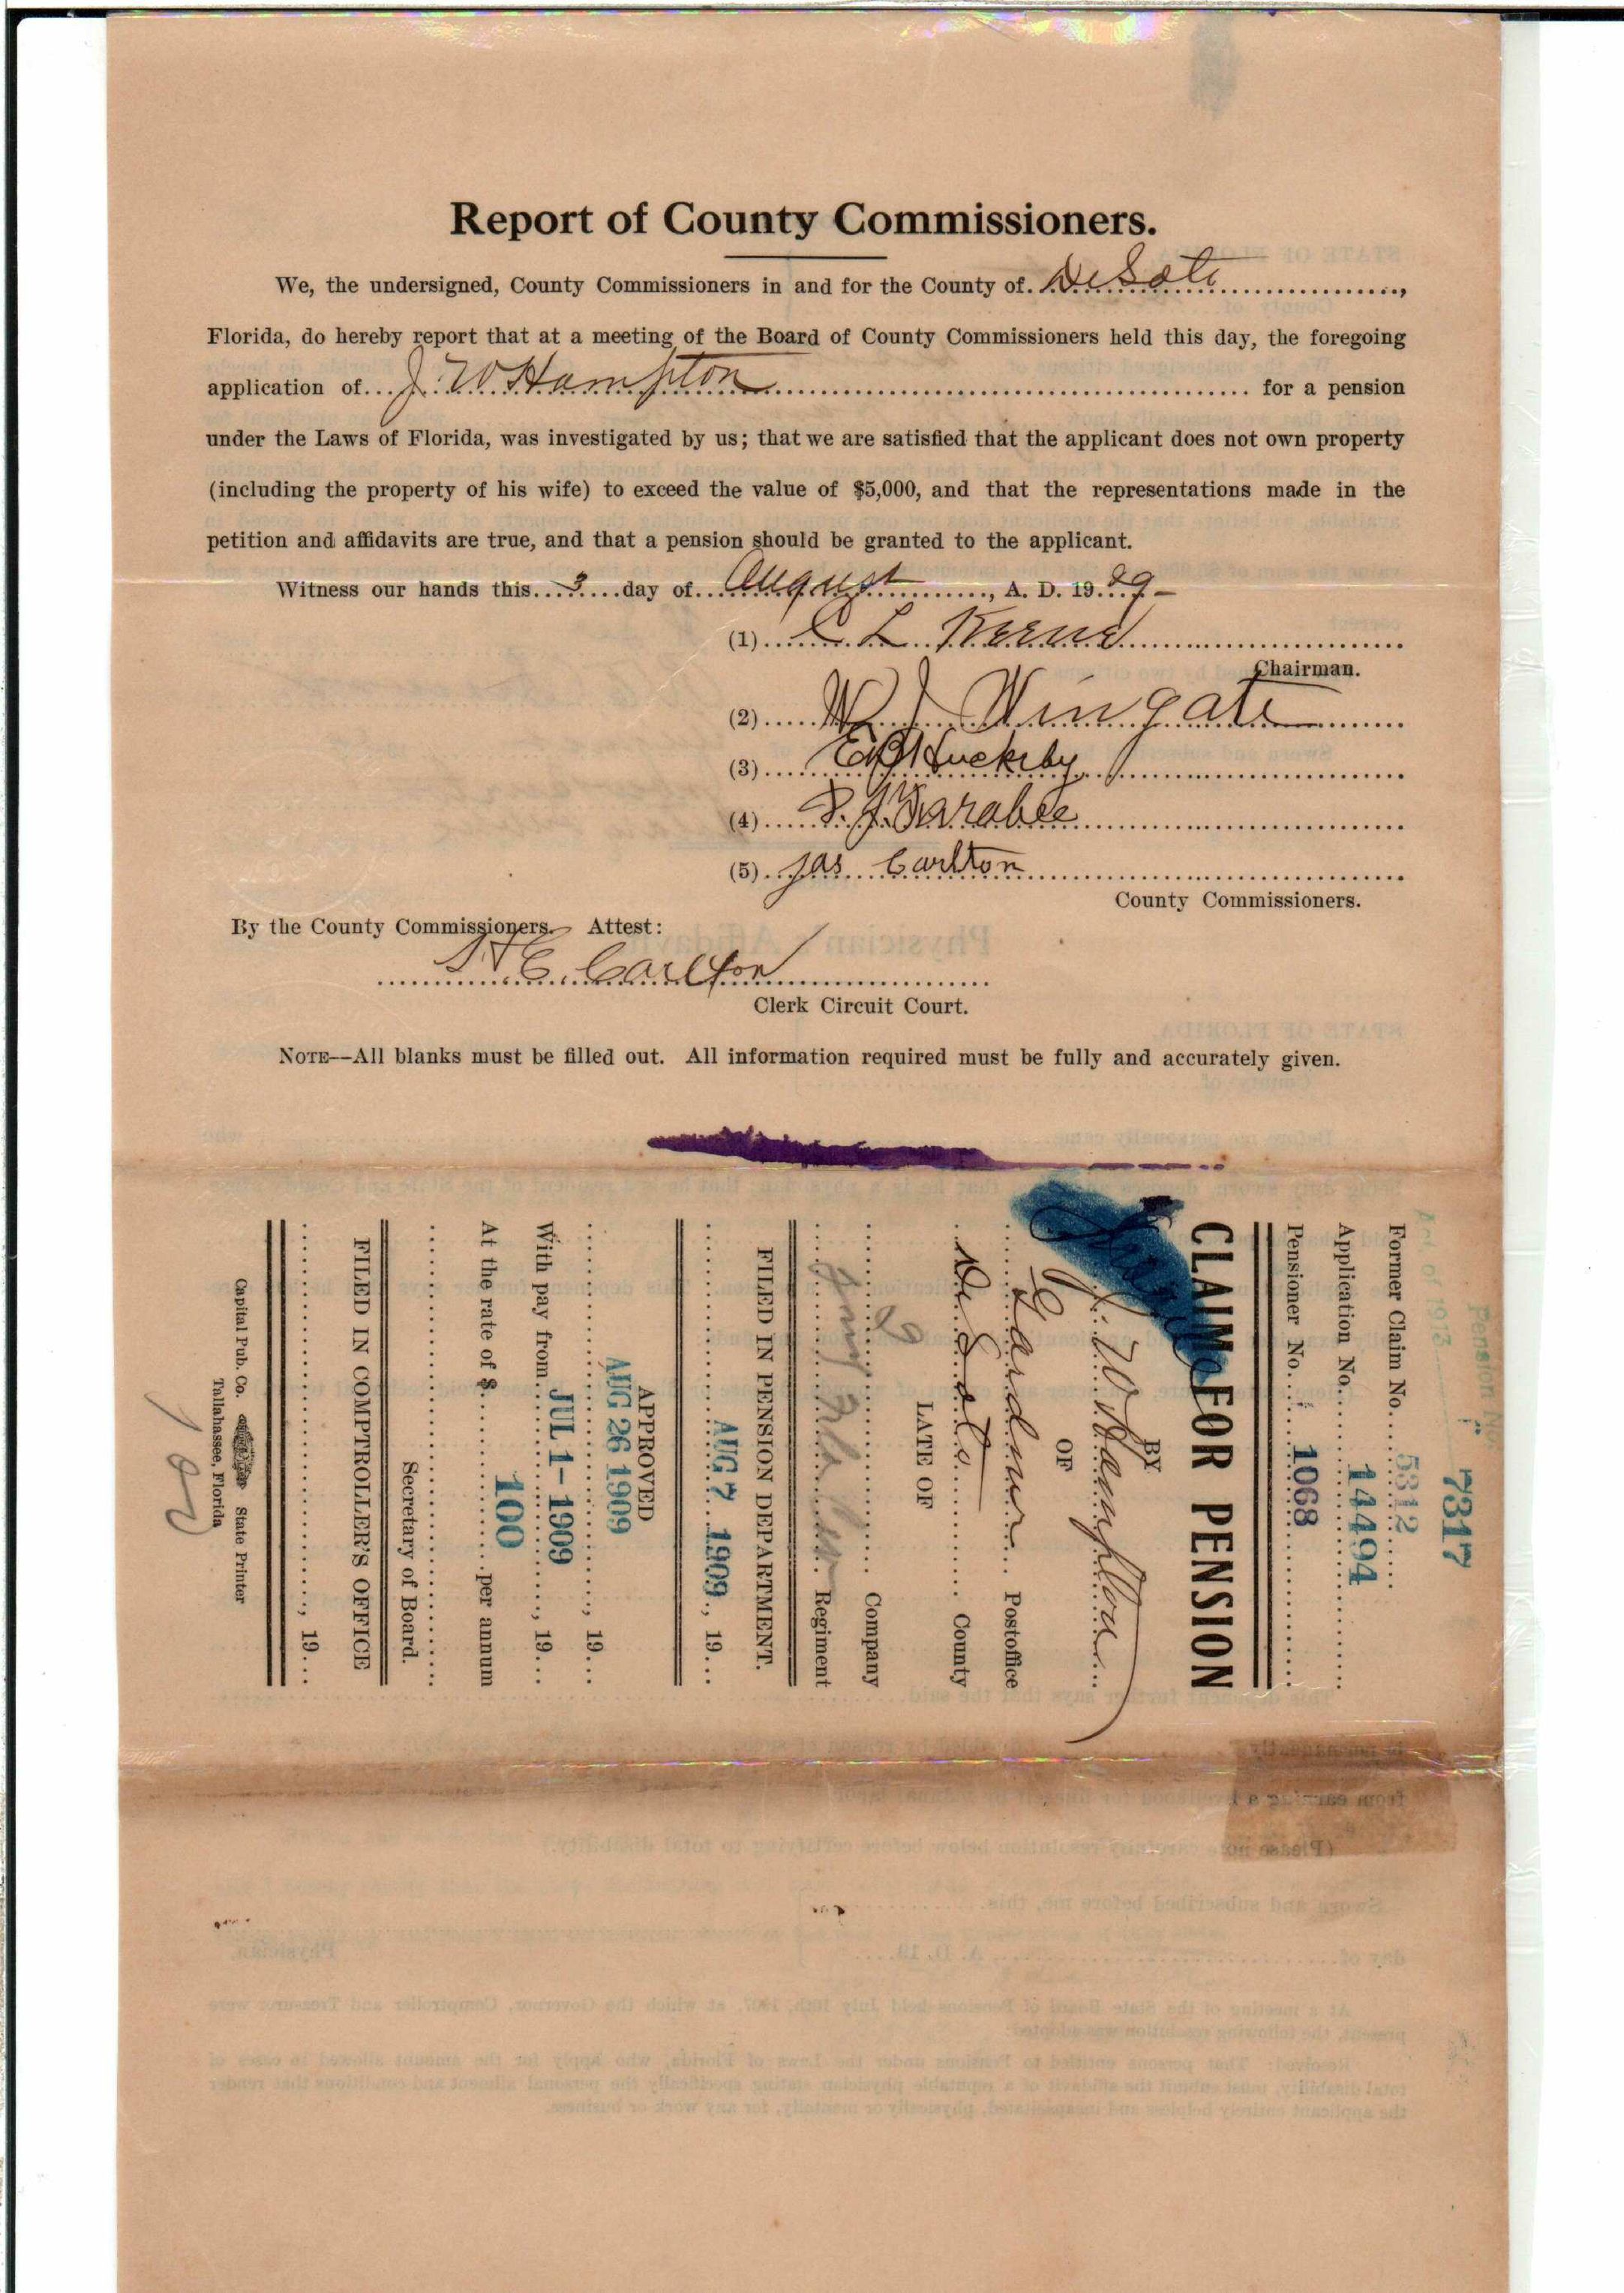 Report of County Commissioners.
We, the undersigned, County Commissioners in and for the County of. De Soto,
Florida, do hereby report that at a meeting of the Board of County Commissioners held this day, the foregoing
application of J. W. Hampton for a pension
under the Laws of Florida, was investigated by us; that we are satisfied that the applicant does not own property
(including the property of his wife) to exceed the value of $5,000, and that the representations made in the
petition and affidavits are true, and that a pension should be granted to the applicant.
Witness our hands this 3 day of August, A. D. 1909
(1) C L
Chairman.
(2) W J Wingate
(3) Huckeby
(4)
(5) Jas Carlton
County Commissioners.
By the County Commissioners. Attest:
Carlton
Clerk Circuit Court.
NOTE—All blanks must be filled out. All information required must be fully and accurately given.
Pension No.
7317
Act of 1913
Former Claim No. 5312
Application No. 14494
Pensioner No. 1068
CLAIM FOR PENSION
BY
J. W. Hampton
OF
Gardner Postoffice
De Soto County
LATE OF
Company
Regiment
FILED IN PENSION DEPARTMENT.
AUG 7 1909, 19
APPROVED
AUG 26 1909, 19
With pay from JUL 1-1909, 19
At the rate of $ 100 per annum
Secretary of Board.
FILED IN COMPTROLLER'S OFFICE
, 19
Capital Pub. Co. State Printer
Tallahassee, Florida